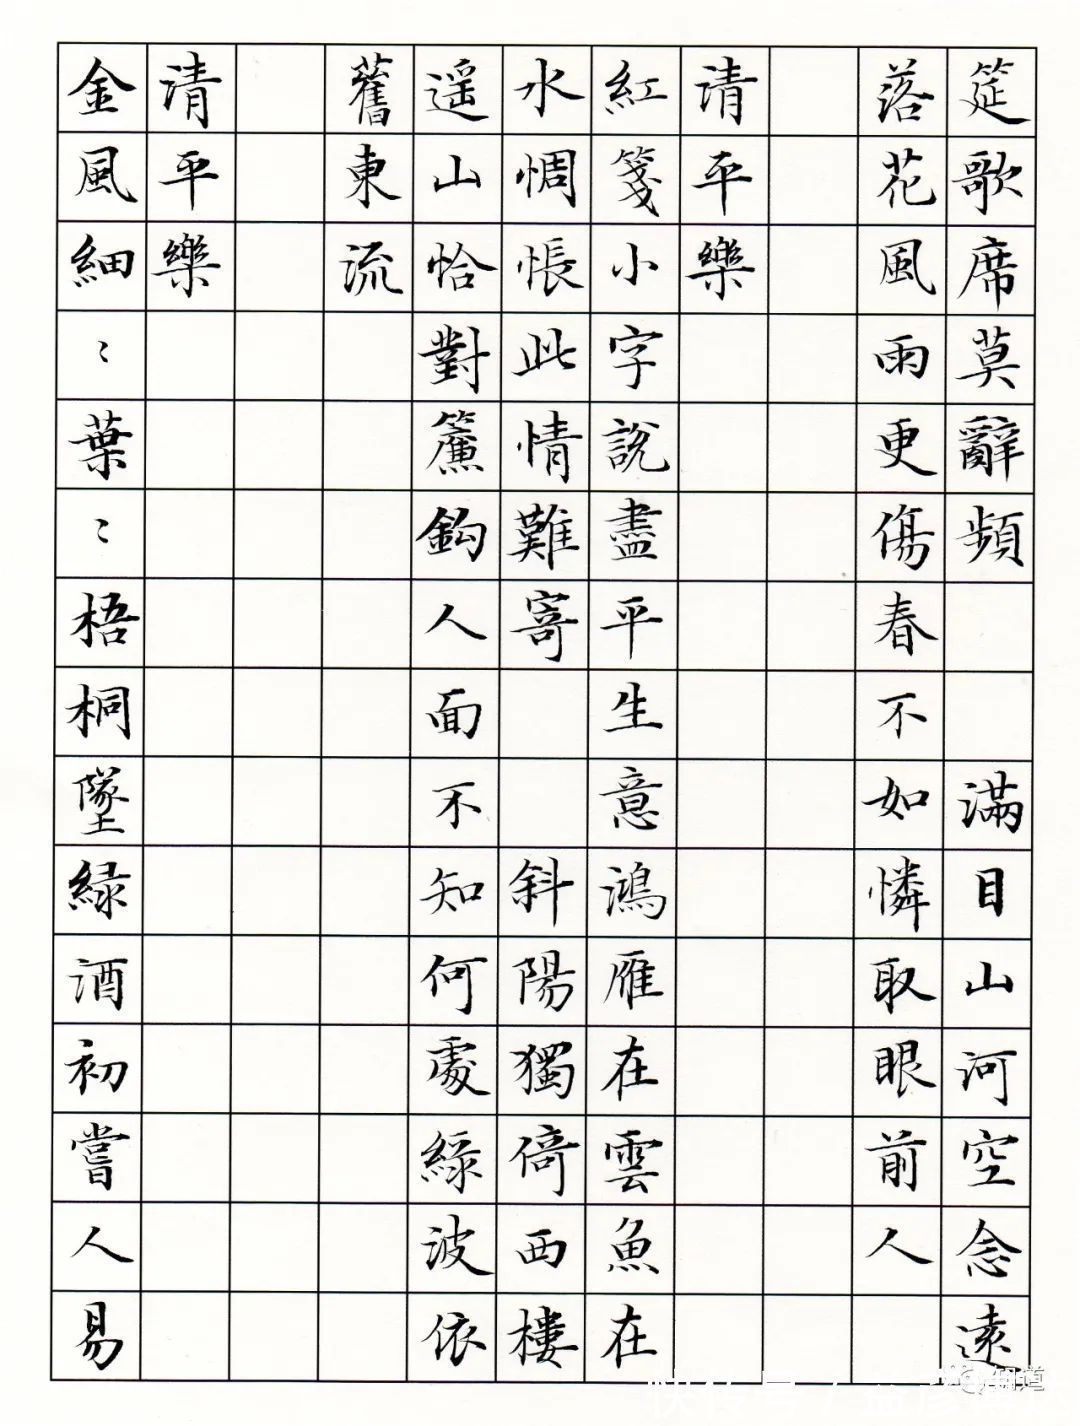 筵歌席莫辭頻　　滿目山河空念遠
落花風雨更傷春不如憐取眼前人
清平樂
紅箋小字説盡平生意鴻雁在雲魚在
水惆悵此情難寄　　斜陽獨倚西樓
遥山恰對簾鈎人面不知何處緑波依
舊東流
清平樂
金風細〻葉〻梧桐墜緑酒初嘗人易